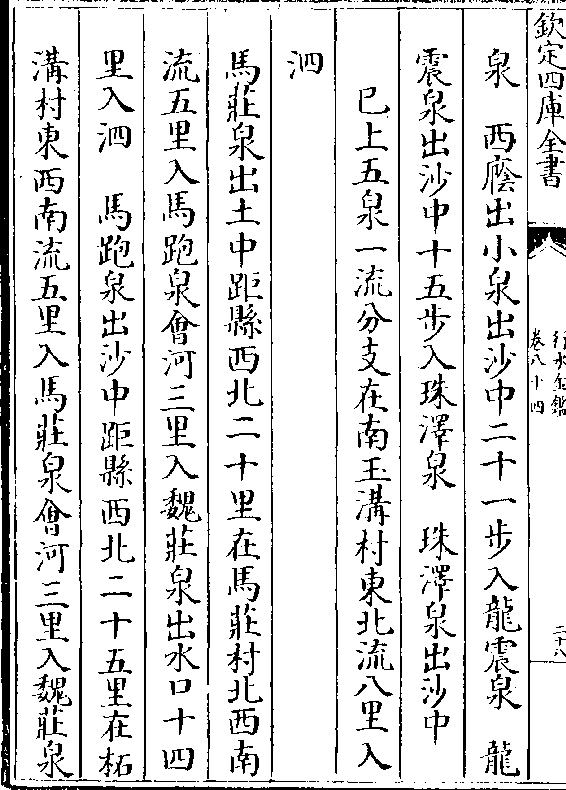 欽定四庫全書
行水金鑑
卷八十四
二十八
泉　西蔭出小泉出沙中二十一步入龍震泉　龍
震泉出沙中十五步入珠澤泉　珠澤泉出沙中
已上五泉一流分支在南玉溝村東北流八里入
泗
馬莊泉出土中距縣西北二十里在馬莊村北西南
流五里入馬跑泉會河三里入魏莊泉出水口十四
里入泗　馬跑泉出沙中距縣西北二十五里在柘
溝村東西南流五里入馬莊泉會河三里入魏莊泉